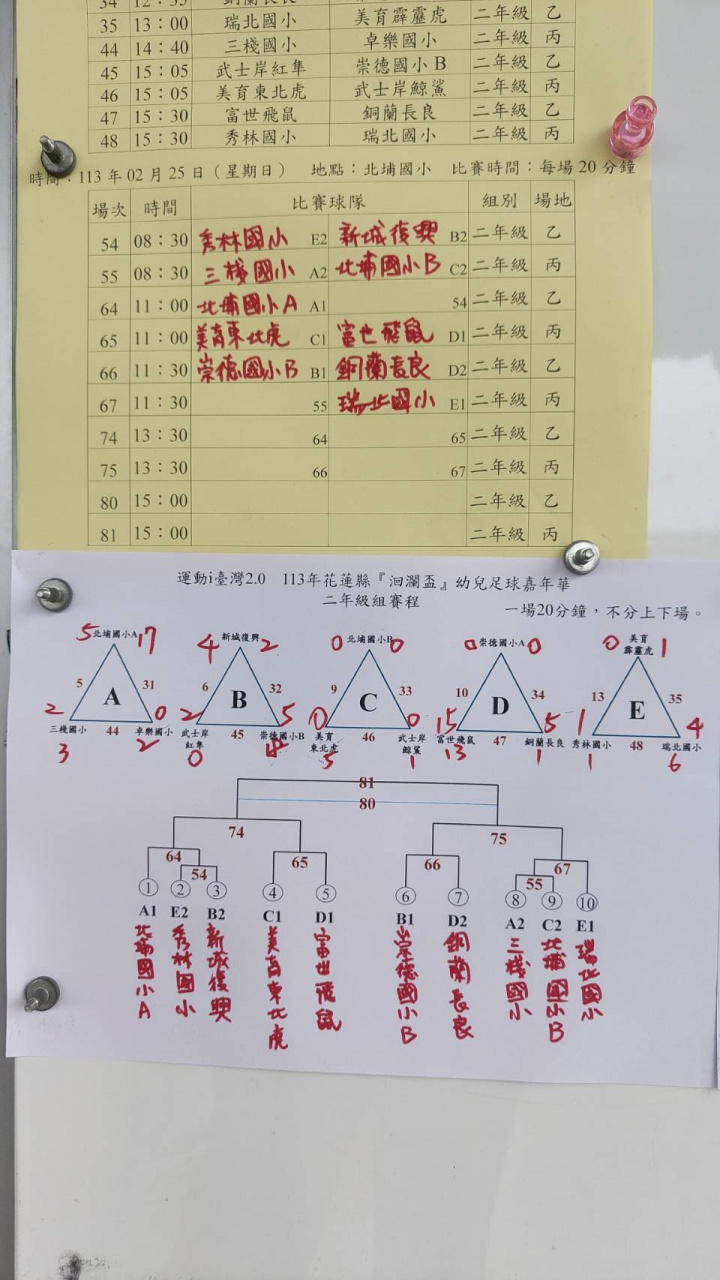 34 12:35 銅蘭長良
35 13:00 瑞北國小 美育霹靂虎 二年級 乙
44 14:40 三棧國小 卓樂國小 二年級 丙
45 15:05 武士岸紅隼 崇德國小B 二年級 乙
46 15:05 美育東北虎 武士岸鯨鯊 二年級 丙
47 15:30 富世飛鼠 銅蘭長良 二年級 乙
48 15:30 秀林國小 瑞北國小 二年級 丙
時間：113年02月25日（星期日） 地點：北埔國小 比賽時間：每場20分鐘
場次 時間 比賽球隊 組別 場地
54 08:30 秀林國小 E2 新城復興 B2 二年級 乙
55 08:30 三棧國小 A2 北埔國小B C2 二年級 丙
64 11:00 北埔國小A A1 54 二年級 乙
65 11:00 美育東北虎 C1 富世飛鼠 D1 二年級 丙
66 11:30 崇德國小B B1 銅蘭長良 D2 二年級 乙
67 11:30 55 瑞北國小 E1 二年級 丙
74 13:30 64 65 二年級 乙
75 13:30 66 67 二年級 丙
80 15:00 二年級 乙
81 15:00 二年級 丙
運動i臺灣2.0 113年花蓮縣『洄瀾盃』幼兒足球嘉年華
二年級組賽程
一場20分鐘，不分上下場。
5 北埔國小A 17 4 新城復興 2 0 北埔國小B 0 0 崇德國小A 0 0 美育霹靂虎 1
5 A 31 6 B 32 9 C 33 10 D 34 13 E 35
2 0 2 5 0 15 5 1 4
三棧國小 44 卓樂國小 武士岸紅隼 45 崇德國小B 美育東北虎 46 武士岸鯨鯊 富世飛鼠 47 銅蘭長良 秀林國小 48 瑞北國小
3 2 0 5 1 13 1 1 6
81
80
74 75
64 65 66 67
54 55
① ② ③ ④ ⑤ ⑥ ⑦ ⑧ ⑨ ⑩
A1 E2 B2 C1 D1 B1 D2 A2 C2 E1
北埔國小A 秀林國小 新城復興 美育東北虎 富世飛鼠 崇德國小B 銅蘭長良 三棧國小 北埔國小B 瑞北國小